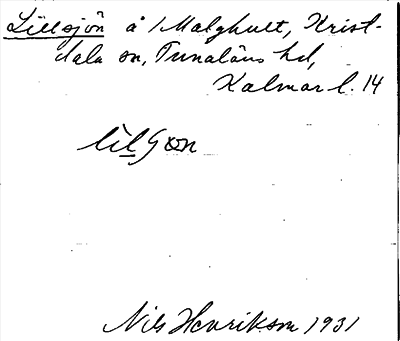 Lillsjön å /Malghult, Krist-
dala sn, Tunaläns hd,
Kalmar l. 14
Nils Henrikson 1931